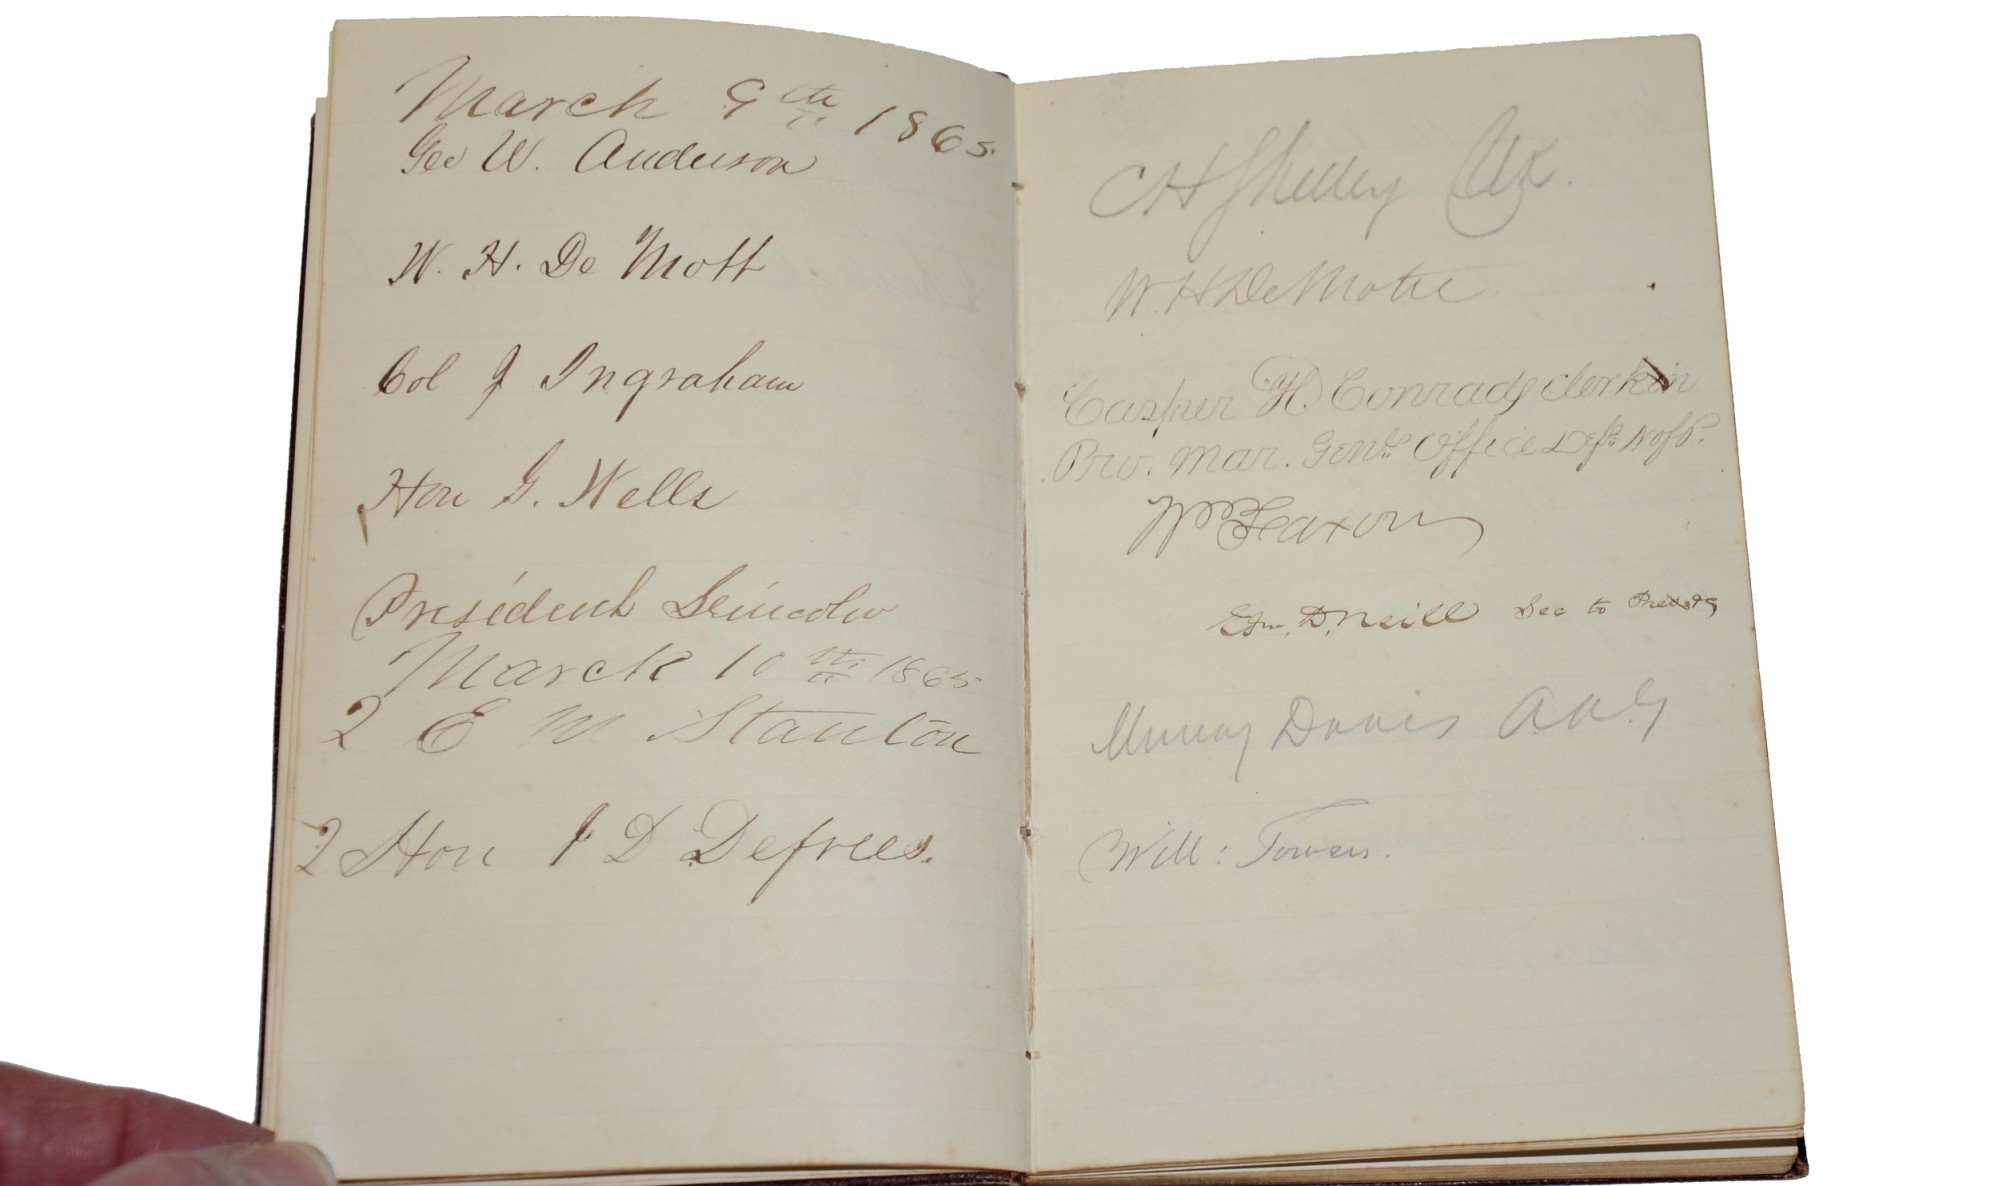 March 9th 1865.
Geo W. Anderson
W. H. De Mott
Col J Ingraham
Hon G. Wells
President Leincoln
March 10th 1865
2 E M Stanton
2 Hon J D Defrees.
C H Shelley
W. H. De Motte
Casper H. Conrady clerk in
Pro. Mar. Genls Office
Wm Faxon
Edw. D. Neill Sec to
Murray Davis
Will: Towers.